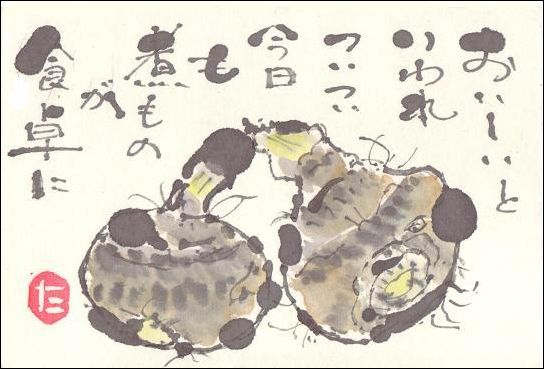 おいしいと
いわれ
ついつい
今日
も
煮もの
が
食卓に
た